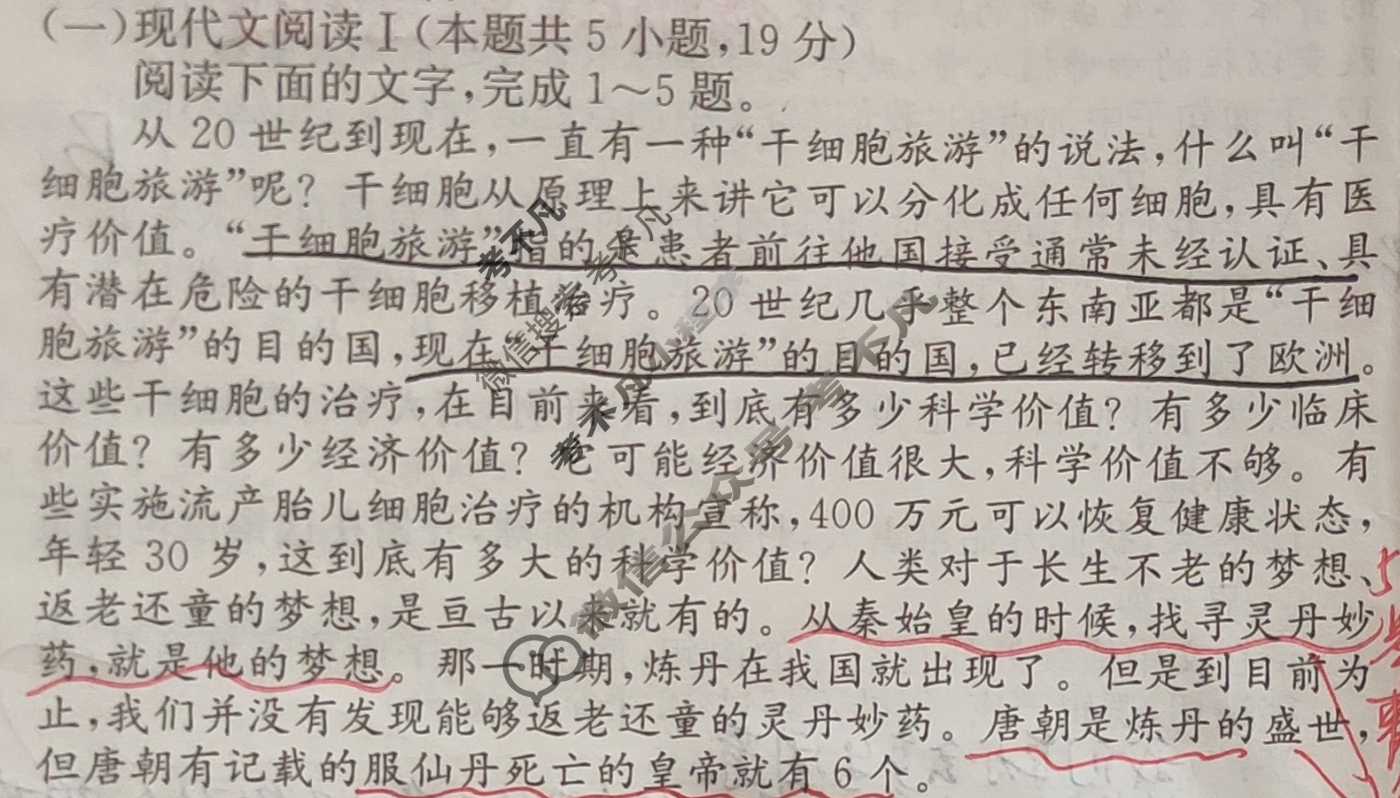 (一)现代文阅读Ⅰ(本题共5小题,19分)
阅读下面的文字,完成1～5题。
从20世纪到现在,一直有一种“干细胞旅游”的说法,什么叫“干
细胞旅游”呢? 干细胞从原理上来讲它可以分化成任何细胞,具有医
疗价值。“干细胞旅游”指的是患者前往他国接受通常未经认证、具
有潜在危险的干细胞移植治疗。20世纪几乎整个东南亚都是“干细
胞旅游”的目的国,现在“干细胞旅游”的目的国,已经转移到了欧洲。
这些干细胞的治疗,在目前来看,到底有多少科学价值? 有多少临床
价值? 有多少经济价值? 它可能经济价值很大,科学价值不够。有
些实施流产胎儿细胞治疗的机构宣称,400万元可以恢复健康状态,
年轻30岁,这到底有多大的科学价值? 人类对于长生不老的梦想、
返老还童的梦想,是亘古以来就有的。从秦始皇的时候,找寻灵丹妙
药,就是他的梦想。那一时期,炼丹在我国就出现了。但是到目前为
止,我们并没有发现能够返老还童的灵丹妙药。唐朝是炼丹的盛世,
但唐朝有记载的服仙丹死亡的皇帝就有6个。
考不凡
微信搜索考不凡
考不凡小程序
微信公众号 考不凡